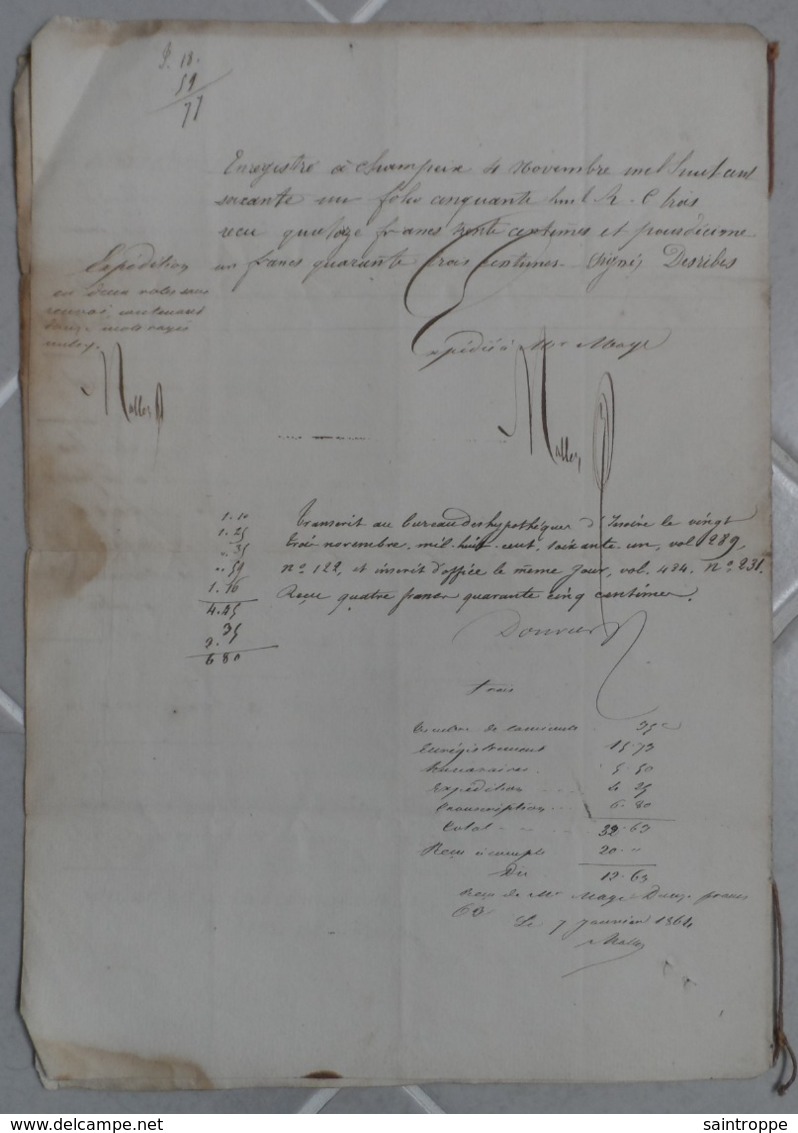 P. 18.
59
77
Enregistré à Champeix 4 novembre mil huit cent
soixante un folio cinquante huit R. C trois
reçu quatorze francs trente centimes et pour décime
un francs quarante trois centimes. Signé, Desribes
Expédition
en deux roles sans
renvoi, contenant
mots rayés
nuls.
Expédié à Mr Mage
1.10
1.25
".35
".59
1.16
4.45
.35
2.
6 80
Transcrit au bureau des hypothèques d'Issoire le vingt
trois novembre, mil-huit-cent, soixante-un, vol 289,
n° 122, et inscrit d'office le même jour, vol. 484. N° 231.
Reçu quatre francs quarante cinq centimes.
Timbre de la minute . 35 c
Enregistrement 15.73
honoraires . 5.50
Expédition 4 25
transcription 6.80
Total 32.63
Reçu à compte 20."
Du 12.63
Reçu de Mr Mage Douze francs
63c Le 7 Janvier 1864
saintroppe